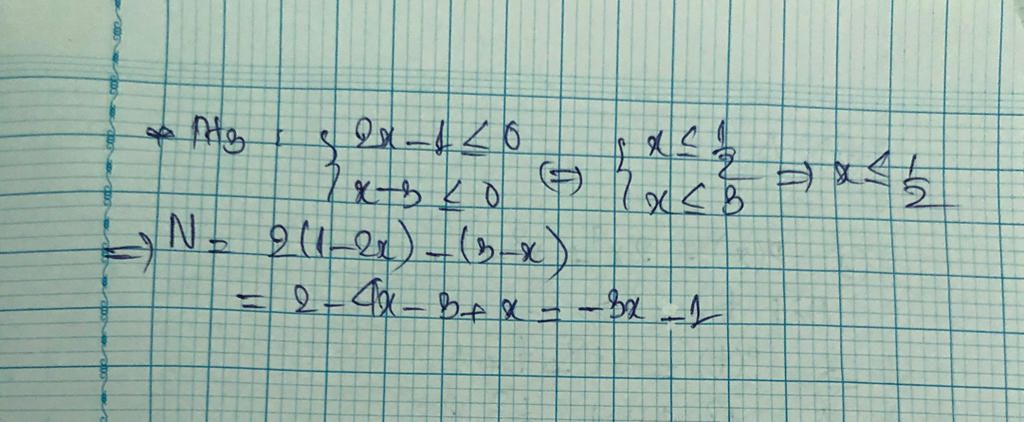 * TH3 : { 2x - 1 ≤ 0 (=) { x ≤ 1/2 => x ≤ 1/2
x - 3 ≤ 0 x ≤ 3
=> N = 2(1-2x) - (3-x)
= 2 - 4x - 3 + x = -3x - 1